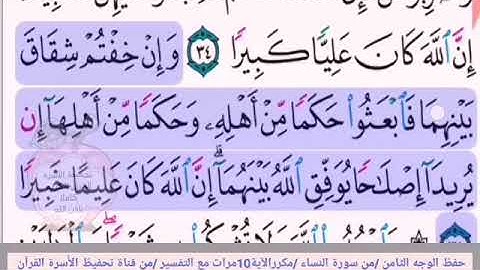 إِنَّ ٱللَّهَ كَانَ عَلِيًّا كَبِيرًا ٣٤ وَإِنْ خِفْتُمْ شِقَاقَ
بَيْنِهِمَا فَٱبْعَثُوا۟ حَكَمًا مِّنْ أَهْلِهِۦ وَحَكَمًا مِّنْ أَهْلِهَآ إِن
يُرِيدَآ إِصْلَٰحًا يُوَفِّقِ ٱللَّهُ بَيْنَهُمَآ ۗ إِنَّ ٱللَّهَ كَانَ عَلِيمًا خَبِيرًا
حفظ الوجه الثامن /من سورة النساء /مكررالآية10مرات مع التفسير /من قناة تحفيظ الأسرة القرآن